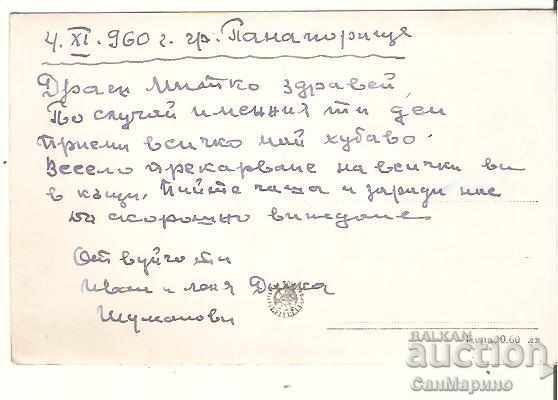 4. XI. 960 г. гр. Панагюрище
Драги Митко здравей
По случай именния ти ден
Приеми всичко най хубаво.
Весело прекарване на всички ви
в къщи. Пийте чаша и заради нас
до скорошно виждане.
От вуйчо ти
Иван и леля Донка
Шуманови
0.60 лв
BALKAN
auction
СанМарино